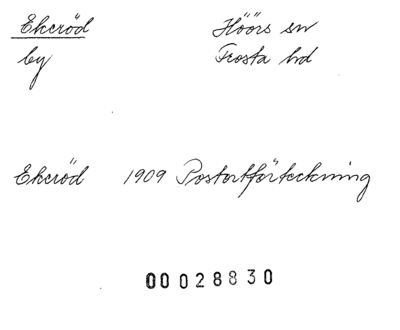 Ekeröd Höörs sn
by Frosta hd
Ekeröd 1909 Postortförteckning
00 028830